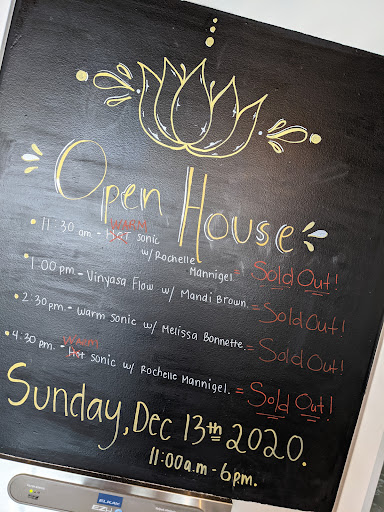 Open House
WARM
11:30 am - HOT sonic
w/ Rochelle
Mannigel = Sold Out!
1:00 pm - Vinyasa Flow w/ Mandi Brown. = Sold Out!
2:30 pm. - warm sonic w/ Melissa Bonnette. = Sold Out!
warm
4:30 pm. - Hot sonic w/ Rochelle Mannigel. = Sold Out!
Sunday, Dec 13th 2020.
11:00 a.m - 6 pm.
ELKAY